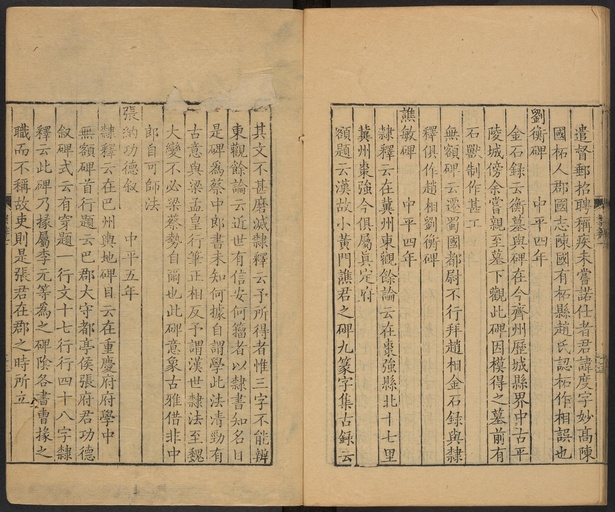 遣督郵招聘稱疾未嘗諾仕者君諱度字妙高陳
國柘人郡國志陳國有柘縣趙氏認柘作相誤也
劉衡碑　中平四年
金石録云衡墓與碑在今齊州歷城縣界中古平
陵城傍余嘗親至墓下觀此碑因模得之墓前有
石獸制作甚工
無額碑云遷蜀國都尉不行拜趙相金石録與隸
釋俱作趙相劉衡碑
譙敏碑　中平四年
隷釋云在冀州東觀餘論云在棗強縣北十七里
冀州棗強今俱屬真定府
額題云漢故小黃門譙君之碑九篆字集古録云
其文不甚磨滅隷釋云予所得者惟三字不能辨
東觀餘論云近世有信安何籀者以隷書知名曰
是碑為蔡中郎書未知何據自謂學此法清勁有
古意與梁孟皇行筆正相反予謂漢世隷法至魏
大變不必梁蔡勢自爾也此碑意象古雅借非中
郎自可師法
張納功德叙　中平五年
隷釋云在巴州輿地碑目云在重慶府府學中
無額碑首行題云巴郡大守都亭侯張府君功德
叙碑式云有穿題一行文十七行行四十八字隷
釋云此碑乃掾屬李元等為之碑陰各書曹掾之
職而不稱故吏則是張君在郡之時所立